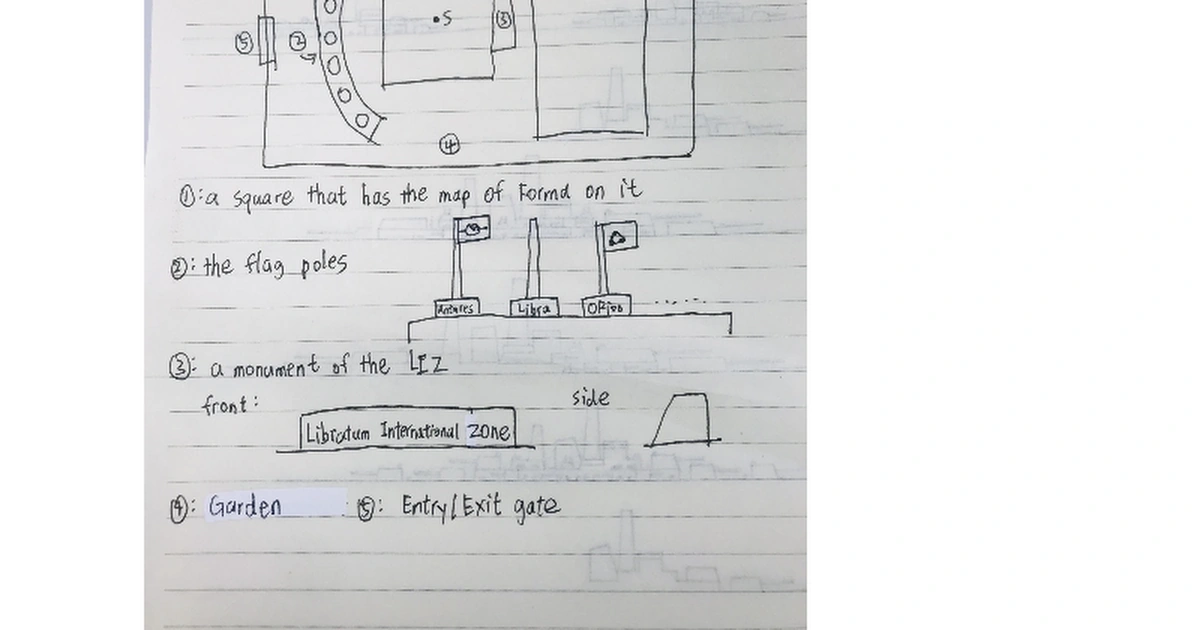 •S ③
⑤ ②
④
①: a square that has the map of Formd on it
②: the flag poles
Antares Libra .....
③: a monument of the LIZ
front: side
Libratum International zone
④: Garden ⑤: Entry/Exit gate